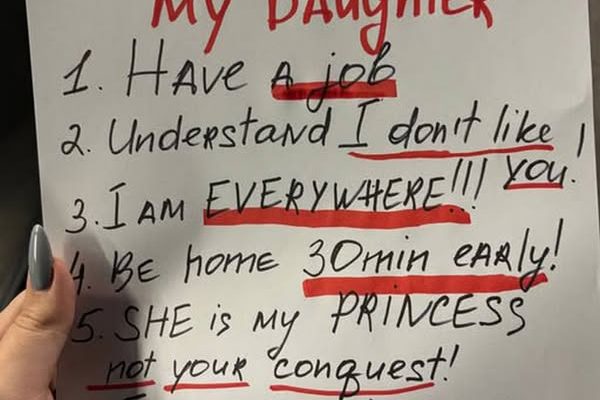 My Daughter
1. Have a job
2. Understand I don't like you!
3. I am EVERYWHERE!!!
4. Be home 30min early!
5. SHE is my PRINCESS
not your conquest!